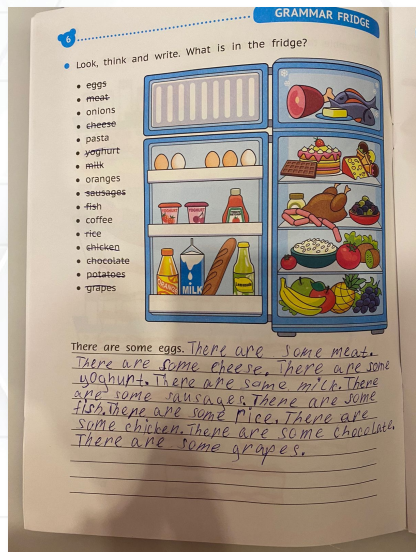 GRAMMAR FRIDGE
6
Look, think and write. What is in the fridge?
eggs
meat
onions
cheese
pasta
yoghurt
milk
oranges
sausages
fish
coffee
rice
chicken
chocolate
potatoes
grapes
MILK
There are some eggs. There are some meat.
There are some cheese. There are some
yoghurt. There are some milk. There
are some sausages. There are some
fish. There are some rice. There are
some chicken. There are some chocolate.
There are some grapes.